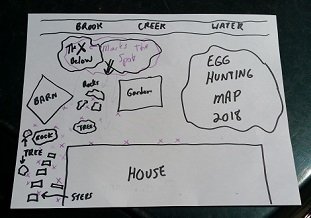 BROOK CREEK WATER
The X Marks The
Below Spot
EGG
HUNTING
MAP
2018
BARN
Rocks
Garden
TREE
ROCK
TREE
HOUSE
STEPS